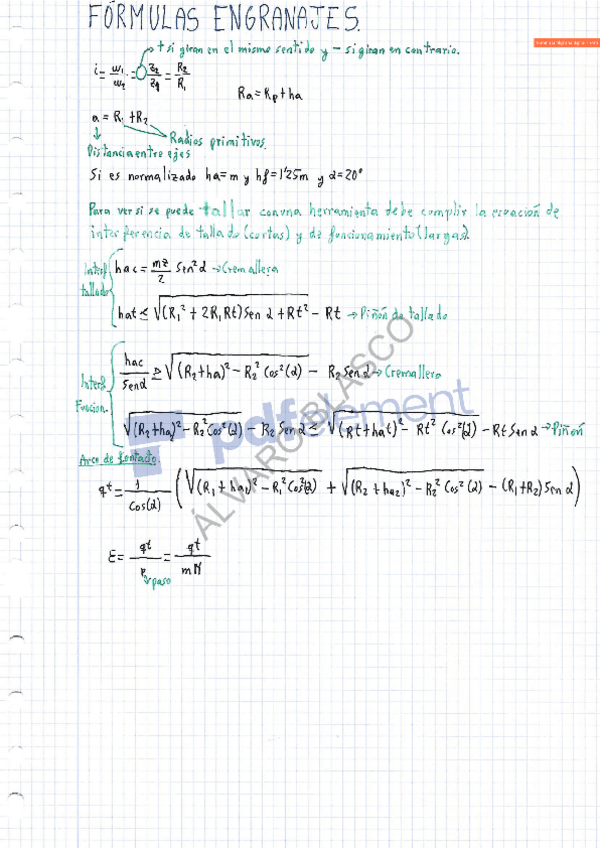 FÓRMULAS ENGRANAJES.
+ si giran en el mismo sentido y - si giran en contrario.
i = w₁/w₂ = z₂/z₁ = R₂/R₁
Ra = Rp + ha
a = R₁ + R₂
Radios primitivos.
Distancia entre ejes
Si es normalizado ha = m y hf = 1'25m y α = 20°
Para ver si se puede tallar con una herramienta debe cumplir la ecuación de
interferencia de tallado (cortas) y de funcionamiento (largas).
Interf tallado
hac = mz/2 sen²α → Cremallera
hat ≤ √((R₁² + 2R₁Rt) Sen α + Rt²) - Rt → Piñón de tallado
Interf Funcion.
hac/senα ≥ √((R₂+ha)² - R₂² Cos²(α)) - R₂ Sen α → Cremallera
√((R₂+ha)² - R₂² Cos²(α)) - R₂ Sen α ≤ √((Rt+hat)² - Rt² Cos²(α)) - Rt Sen α → Piñón
Arco de Contacto.
qt = 1/cos(α) (√((R₁+ha₁)² - R₁² Cos²(α)) + √((R₂+ha₂)² - R₂² Cos²(α)) - (R₁+R₂) Sen α)
ε = qt/p = qt/mπ
paso
pdfelement
ÁLVARO BLASCO